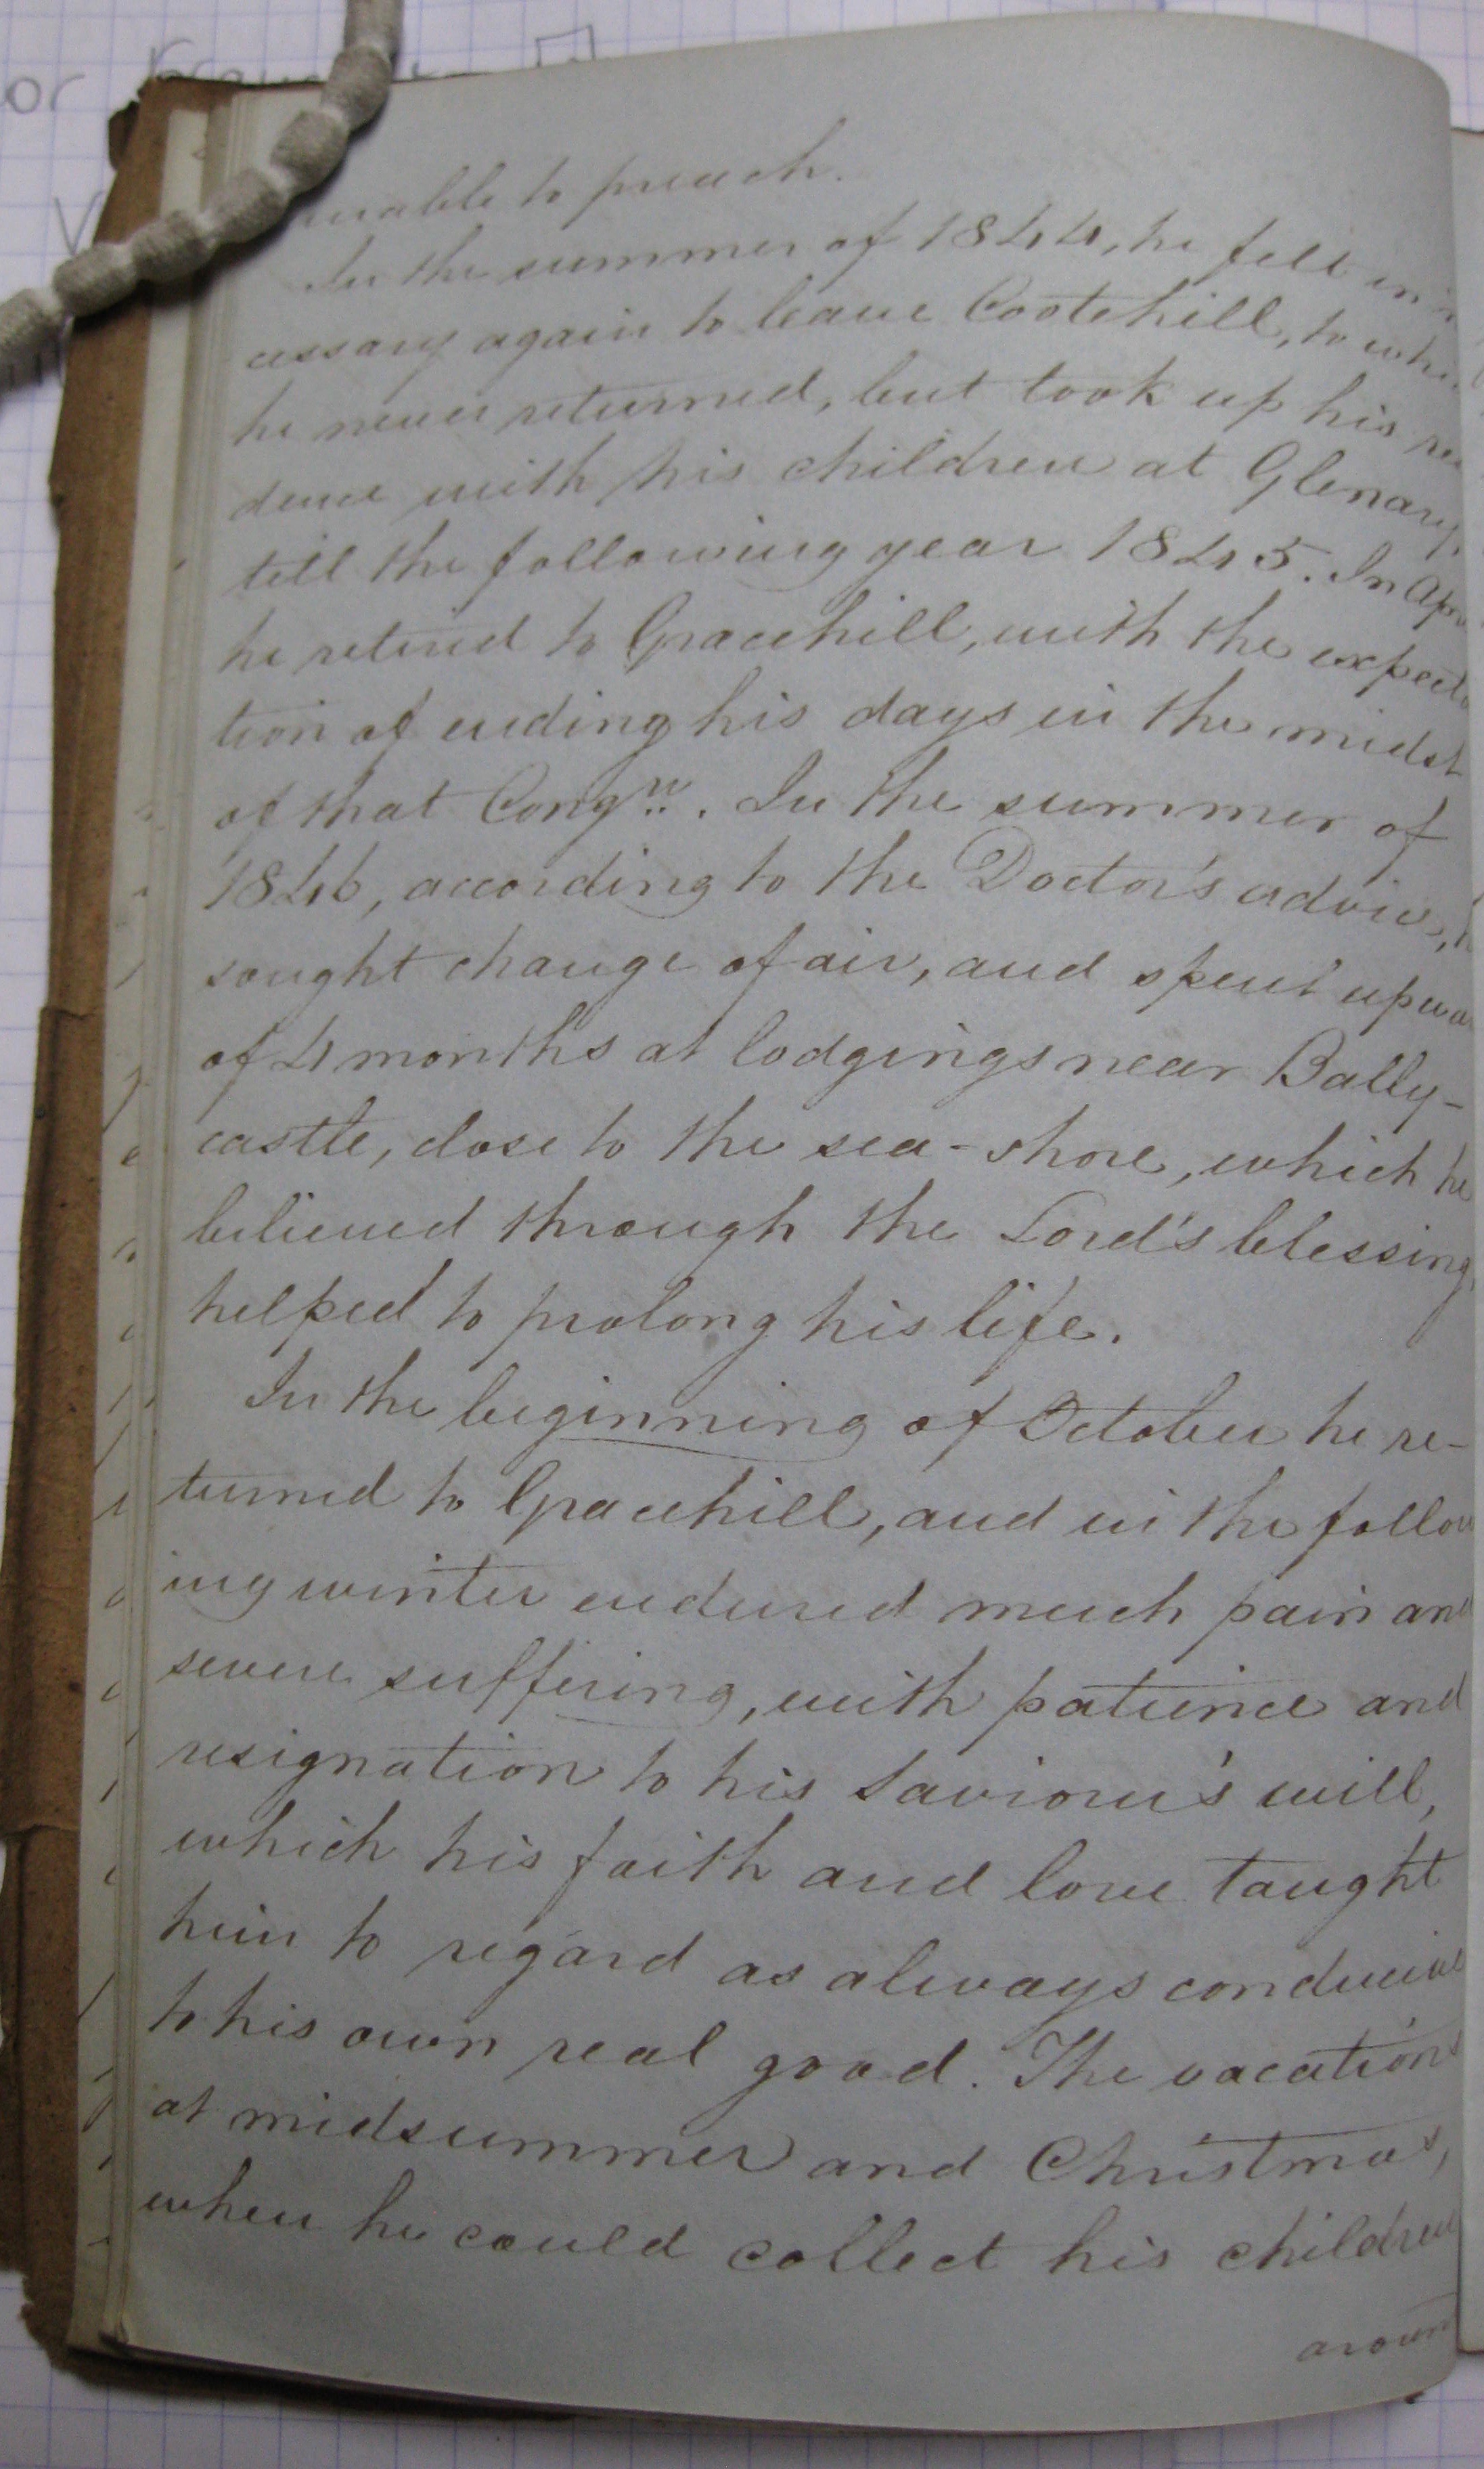 or
unable to preach.
In the summer of 1844, he fell
cessary again to leave Cootehill, to whi
he never returned, but took up his re
dence with his children at Glenavy,
till the following year 1845. In Apri
he retired to Gracehill, with the expecta
tion of ending his days in the midst
of that Congn. In the summer of
1846, according to the Doctor's advice, h
sought change of air, and spent upwar
of 4 months at lodgings near Bally-
castle, close to the sea-shore, which he
believed through the Lord's blessing,
helped to prolong his life.
In the beginning of October he re-
turned to Gracehill, and in the follow
ing winter endured much pain and
severe suffering, with patience and
resignation to his Saviour's will,
which his faith and love taught
him to regard as always conducive
to his own real good. The vacations
at midsummer and Christmas,
when he could collect his children
aroun